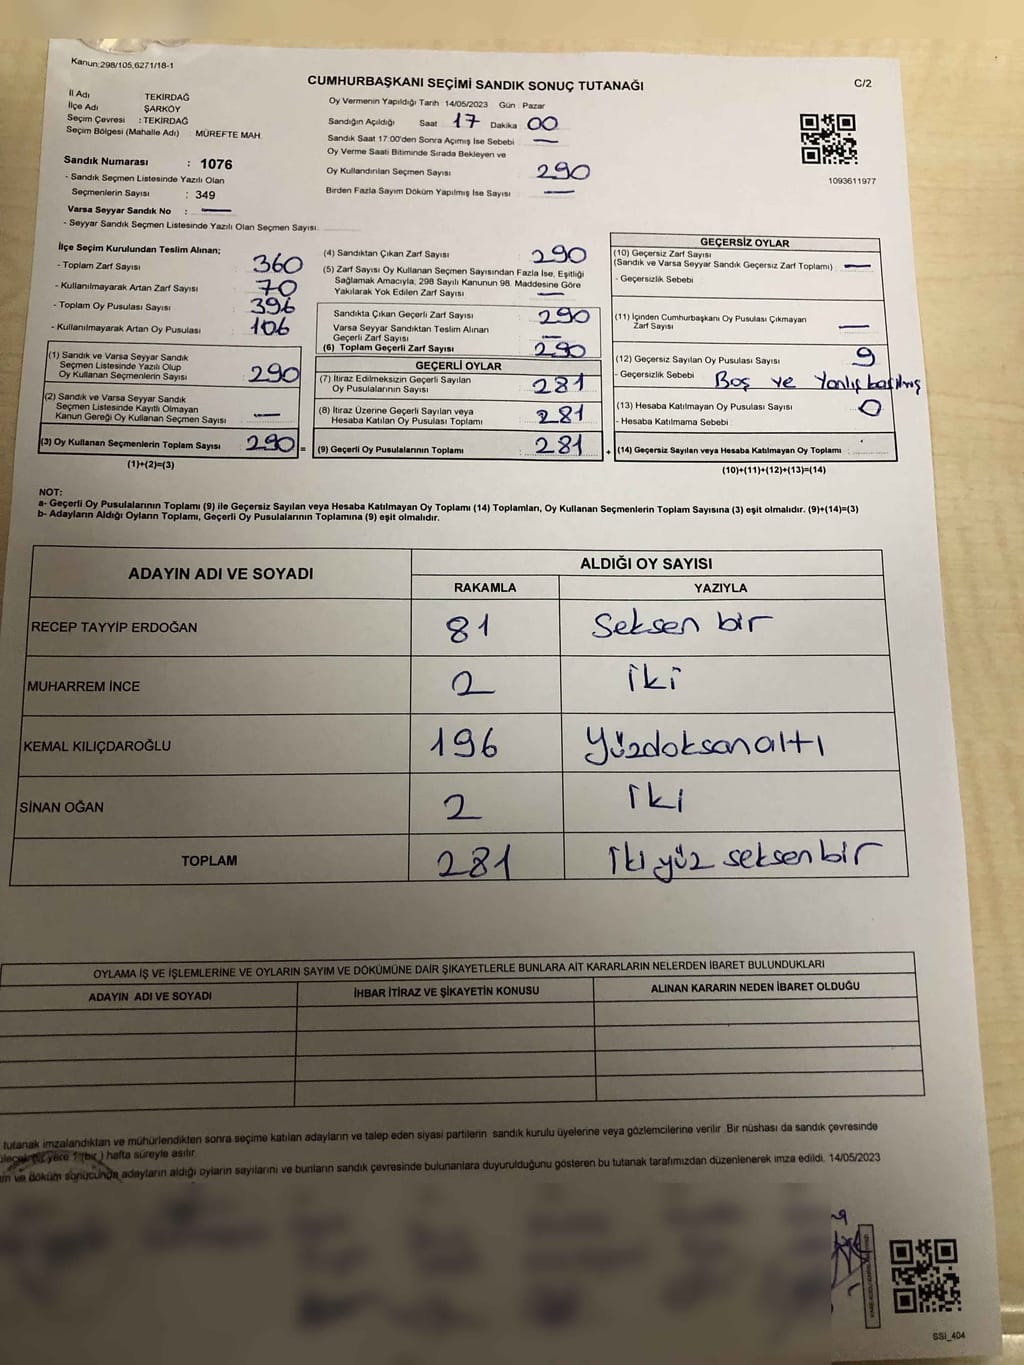 Kanun:298/105,6271/18-1
CUMHURBAŞKANI SEÇİMİ SANDIK SONUÇ TUTANAĞI
C/2
İl Adı TEKİRDAĞ
İlçe Adı ŞARKÖY
Seçim Çevresi : TEKİRDAĞ
Seçim Bölgesi (Mahalle Adı) : MÜREFTE MAH.
Sandık Numarası : 1076
- Sandık Seçmen Listesinde Yazılı Olan
Seçmenlerin Sayısı : 349
Varsa Seyyar Sandık No : —
- Seyyar Sandık Seçmen Listesinde Yazılı Olan Seçmen Sayısı:
Oy Vermenin Yapıldığı Tarih 14/05/2023 Gün : Pazar
Sandığın Açıldığı Saat 17 Dakika 00
Sandık Saat 17:00'den Sonra Açımış İse Sebebi —
Oy Verme Saati Bitiminde Sırada Bekleyen ve
Oy Kullandırılan Seçmen Sayısı 290
Birden Fazla Sayım Döküm Yapılmış İse Sayısı —
1093611977
İlçe Seçim Kurulundan Teslim Alınan;
- Toplam Zarf Sayısı 360
- Kullanılmayarak Artan Zarf Sayısı 70
- Toplam Oy Pusulası Sayısı 396
- Kullanılmayarak Artan Oy Pusulası 106
(1) Sandık ve Varsa Seyyar Sandık
Seçmen Listesinde Yazılı Olup
Oy Kullanan Seçmenlerin Sayısı 290
(2) Sandık ve Varsa Seyyar Sandık
Seçmen Listesinde Kayıtlı Olmayan
Kanun Gereği Oy Kullanan Seçmen Sayısı —
(3) Oy Kullanan Seçmenlerin Toplam Sayısı 290 =
(1)+(2)=(3)
(4) Sandıktan Çıkan Zarf Sayısı 290
(5) Zarf Sayısı Oy Kullanan Seçmen Sayısından Fazla İse, Eşitliği
Sağlamak Amacıyla; 298 Sayılı Kanunun 98. Maddesine Göre
Yakılarak Yok Edilen Zarf Sayısı —
Sandıkta Çıkan Geçerli Zarf Sayısı 290
Varsa Seyyar Sandıktan Teslim Alınan
Geçerli Zarf Sayısı —
(6) Toplam Geçerli Zarf Sayısı 290
GEÇERLİ OYLAR
(7) İtiraz Edilmeksizin Geçerli Sayılan
Oy Pusulalarının Sayısı 281
(8) İtiraz Üzerine Geçerli Sayılan veya
Hesaba Katılan Oy Pusulası Toplamı 281
(9) Geçerli Oy Pusulalarının Toplamı 281 +
GEÇERSİZ OYLAR
(10) Geçersiz Zarf Sayısı
(Sandık ve Varsa Seyyar Sandık Geçersiz Zarf Toplamı) —
- Geçersizlik Sebebi
(11) İçinden Cumhurbaşkanı Oy Pusulası Çıkmayan
Zarf Sayısı —
(12) Geçersiz Sayılan Oy Pusulası Sayısı 9
- Geçersizlik Sebebi Boş ve Yanlış basılmış
(13) Hesaba Katılmayan Oy Pusulası Sayısı 0
- Hesaba Katılmama Sebebi
(14) Geçersiz Sayılan veya Hesaba Katılmayan Oy Toplamı :
(10)+(11)+(12)+(13)=(14)
NOT:
a- Geçerli Oy Pusulalarının Toplamı (9) ile Geçersiz Sayılan veya Hesaba Katılmayan Oy Toplamı (14) Toplamları, Oy Kullanan Seçmenlerin Toplam Sayısına (3) eşit olmalıdır. (9)+(14)=(3)
b- Adayların Aldığı Oyların Toplamı, Geçerli Oy Pusulalarının Toplamına (9) eşit olmalıdır.
ADAYIN ADI VE SOYADI ALDIĞI OY SAYISI
RAKAMLA YAZIYLA
RECEP TAYYİP ERDOĞAN 81 Seksen bir
MUHARREM İNCE 2 İki
KEMAL KILIÇDAROĞLU 196 Yüzdoksanaltı
SİNAN OĞAN 2 İki
TOPLAM 281 İkiyüz seksenbir
OYLAMA İŞ VE İŞLEMLERİNE VE OYLARIN SAYIM VE DÖKÜMÜNE DAİR ŞİKAYETLERLE BUNLARA AİT KARARLARIN NELERDEN İBARET BULUNDUKLARI
ADAYIN ADI VE SOYADI İHBAR İTİRAZ VE ŞİKAYETİN KONUSU ALINAN KARARIN NEDEN İBARET OLDUĞU
tutanak imzalandıktan ve mühürlendikten sonra seçime katılan adayların ve talep eden siyasi partilerin sandık kurulu üyelerine veya gözlemcilerine verilir. Bir nüshası da sandık çevresinde
yere 1 (bir) hafta süreyle asılır.
ve döküm sonucunda adayların aldığı oyların sayılarını ve bunların sandık çevresinde bulunanlara duyurulduğunu gösteren bu tutanak tarafımızdan düzenlenerek imza edildi. 14/05/2023
SSİ_404